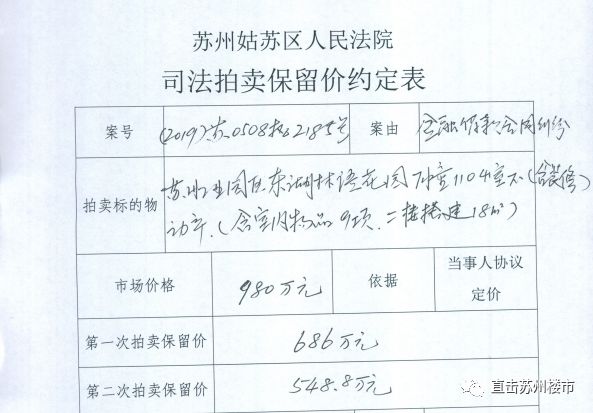 苏州姑苏区人民法院
司法拍卖保留价约定表
案号 (2019)苏0508执2185号 案由 金融借款合同纠纷
拍卖标的物 苏州工业园区东湖林语花园 1104室不(含装修)
动产.(含室内物品9项.二楼搭建18㎡)
市场价格 980万元 依据 当事人协议
定价
第一次拍卖保留价 686万元
第二次拍卖保留价 548.8万元
直击苏州楼市